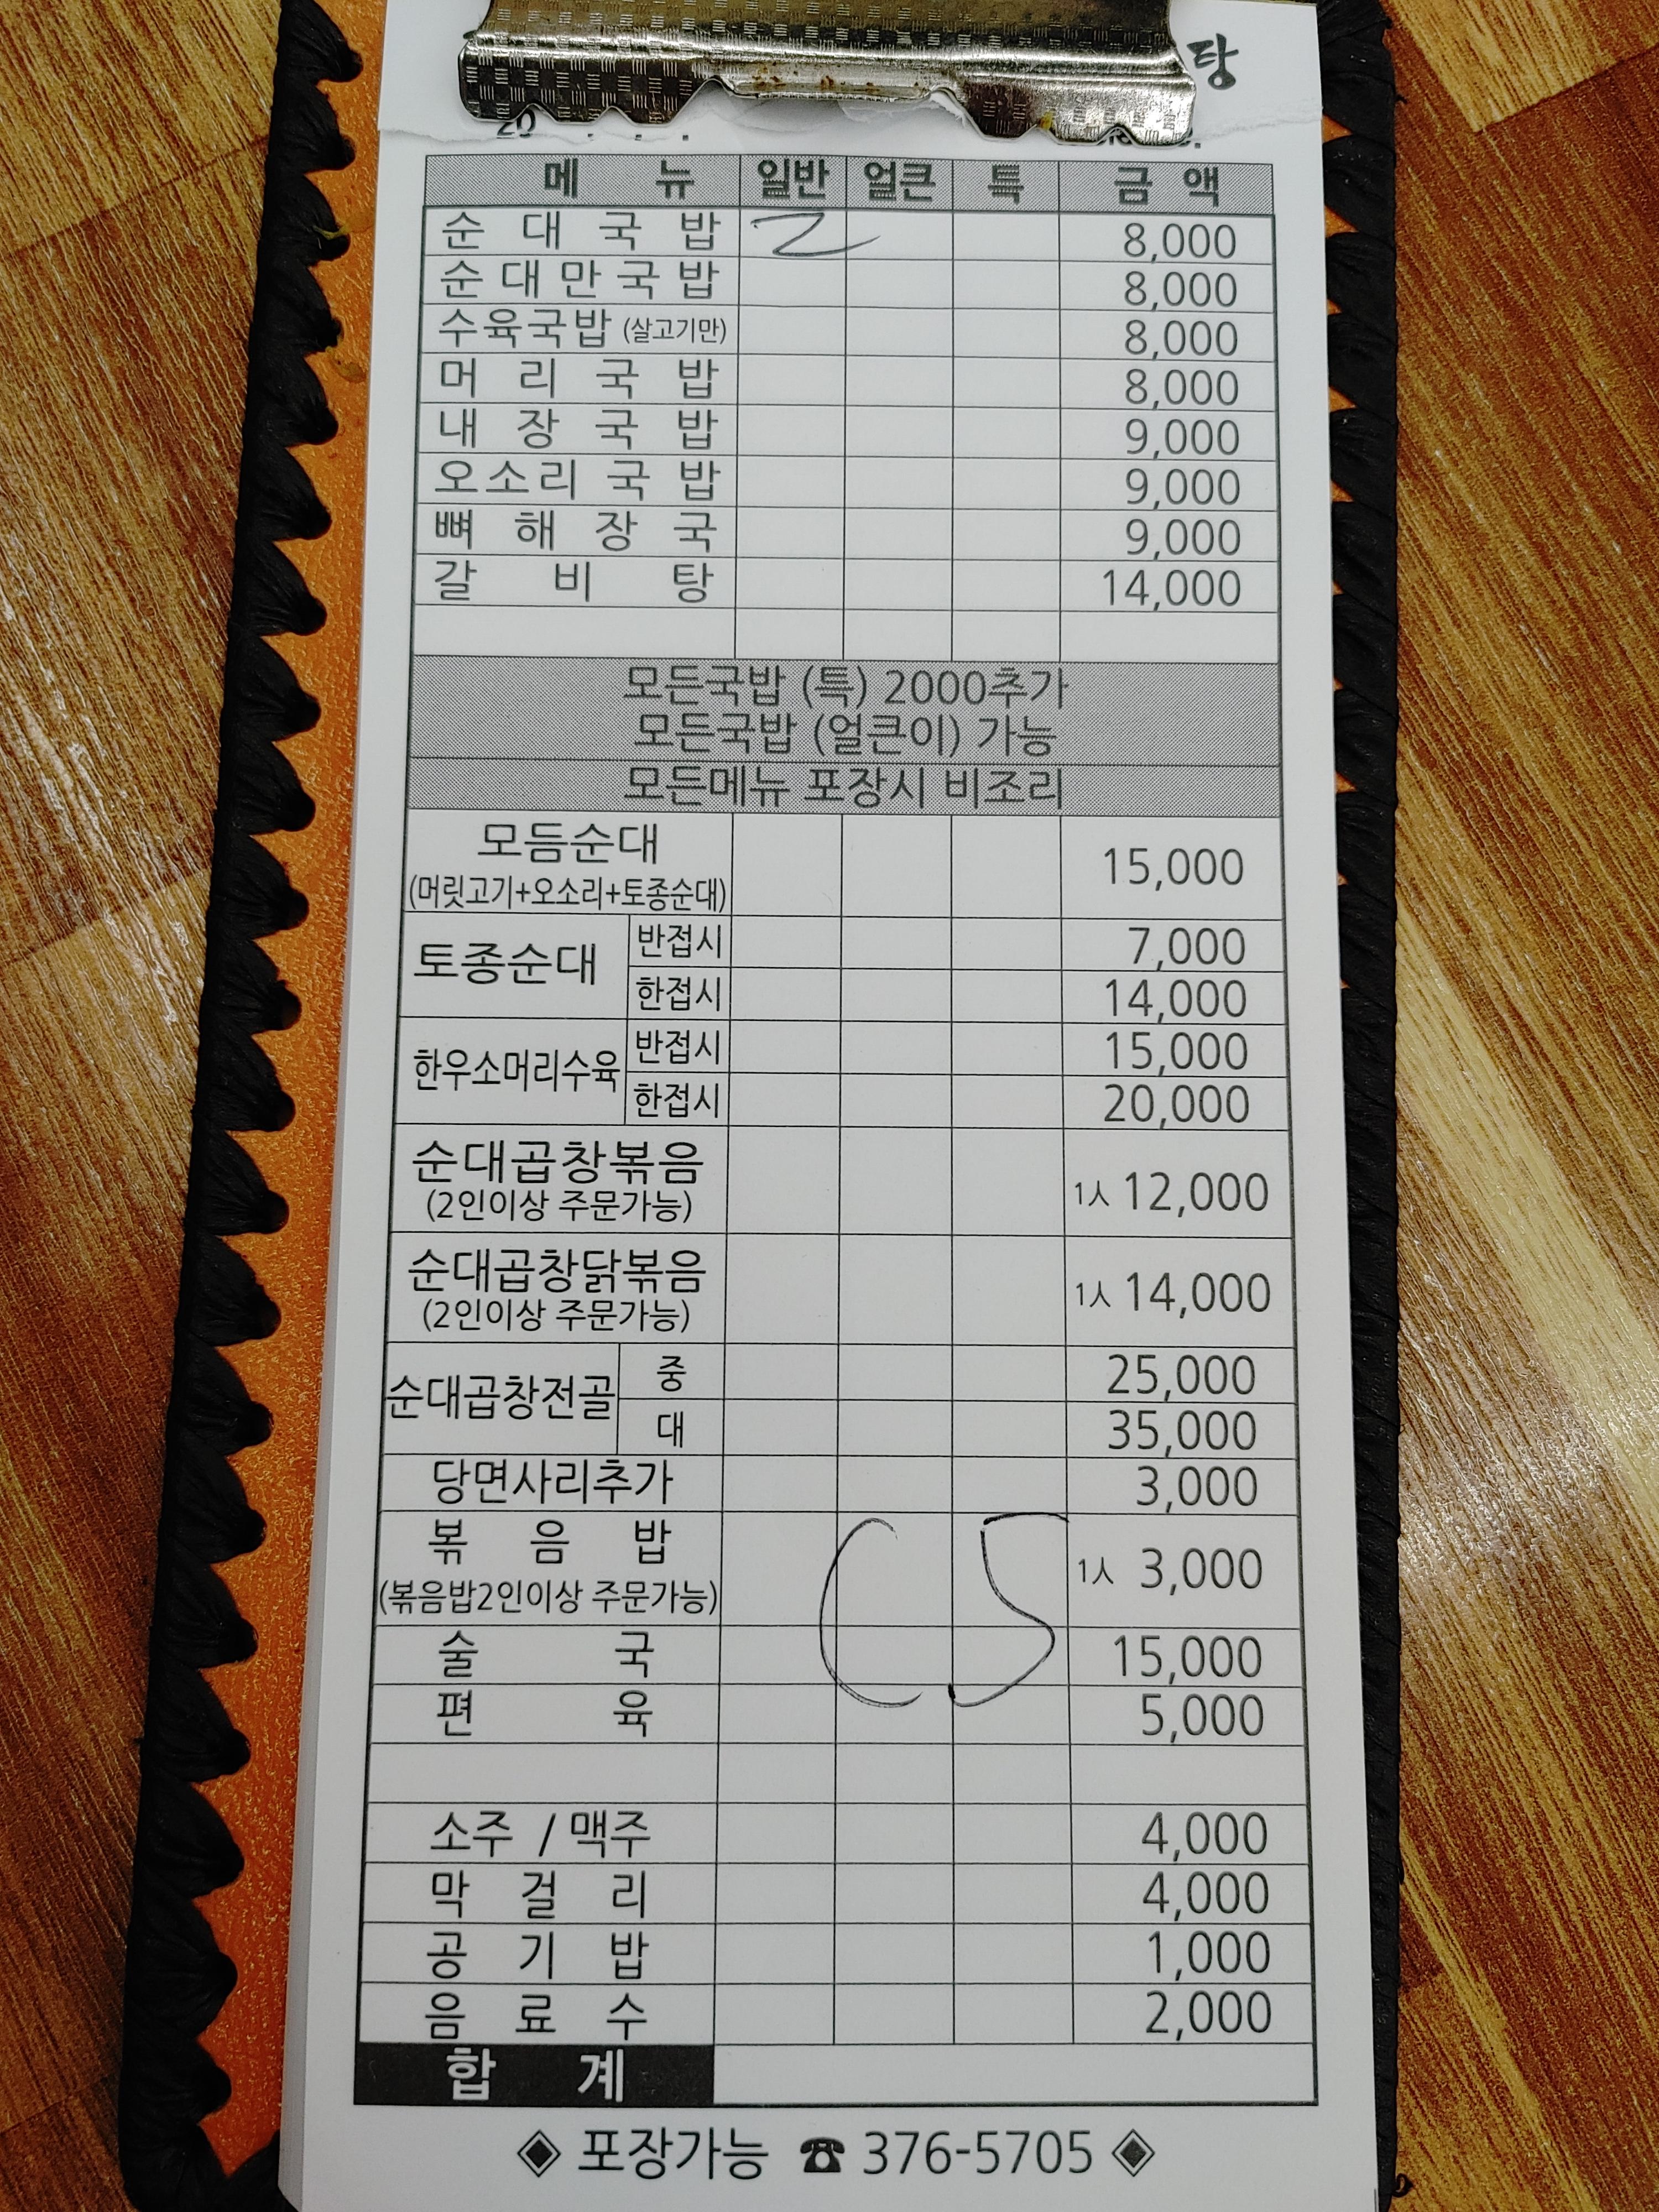 탕
20 . . .
메 뉴 일반 얼큰 특 금 액
순 대 국 밥 2 8,000
순 대 만 국 밥 8,000
수육국밥 (살고기만) 8,000
머 리 국 밥 8,000
내 장 국 밥 9,000
오소리 국 밥 9,000
뼈 해 장 국 9,000
갈 비 탕 14,000
모든국밥 (특) 2000추가
모든국밥 (얼큰이) 가능
모든메뉴 포장시 비조리
모듬순대 15,000
(머릿고기+오소리+토종순대)
토종순대 반접시 7,000
한접시 14,000
한우소머리수육 반접시 15,000
한접시 20,000
순대곱창볶음 1人 12,000
(2인이상 주문가능)
순대곱창닭볶음 1人 14,000
(2인이상 주문가능)
순대곱창전골 중 25,000
대 35,000
당면사리추가 3,000
볶 음 밥 1人 3,000
(볶음밥2인이상 주문가능)
C5
술 국 15,000
편 육 5,000
소주 / 맥주 4,000
막 걸 리 4,000
공 기 밥 1,000
음 료 수 2,000
합 계
◈ 포장가능 ☎ 376-5705 ◈